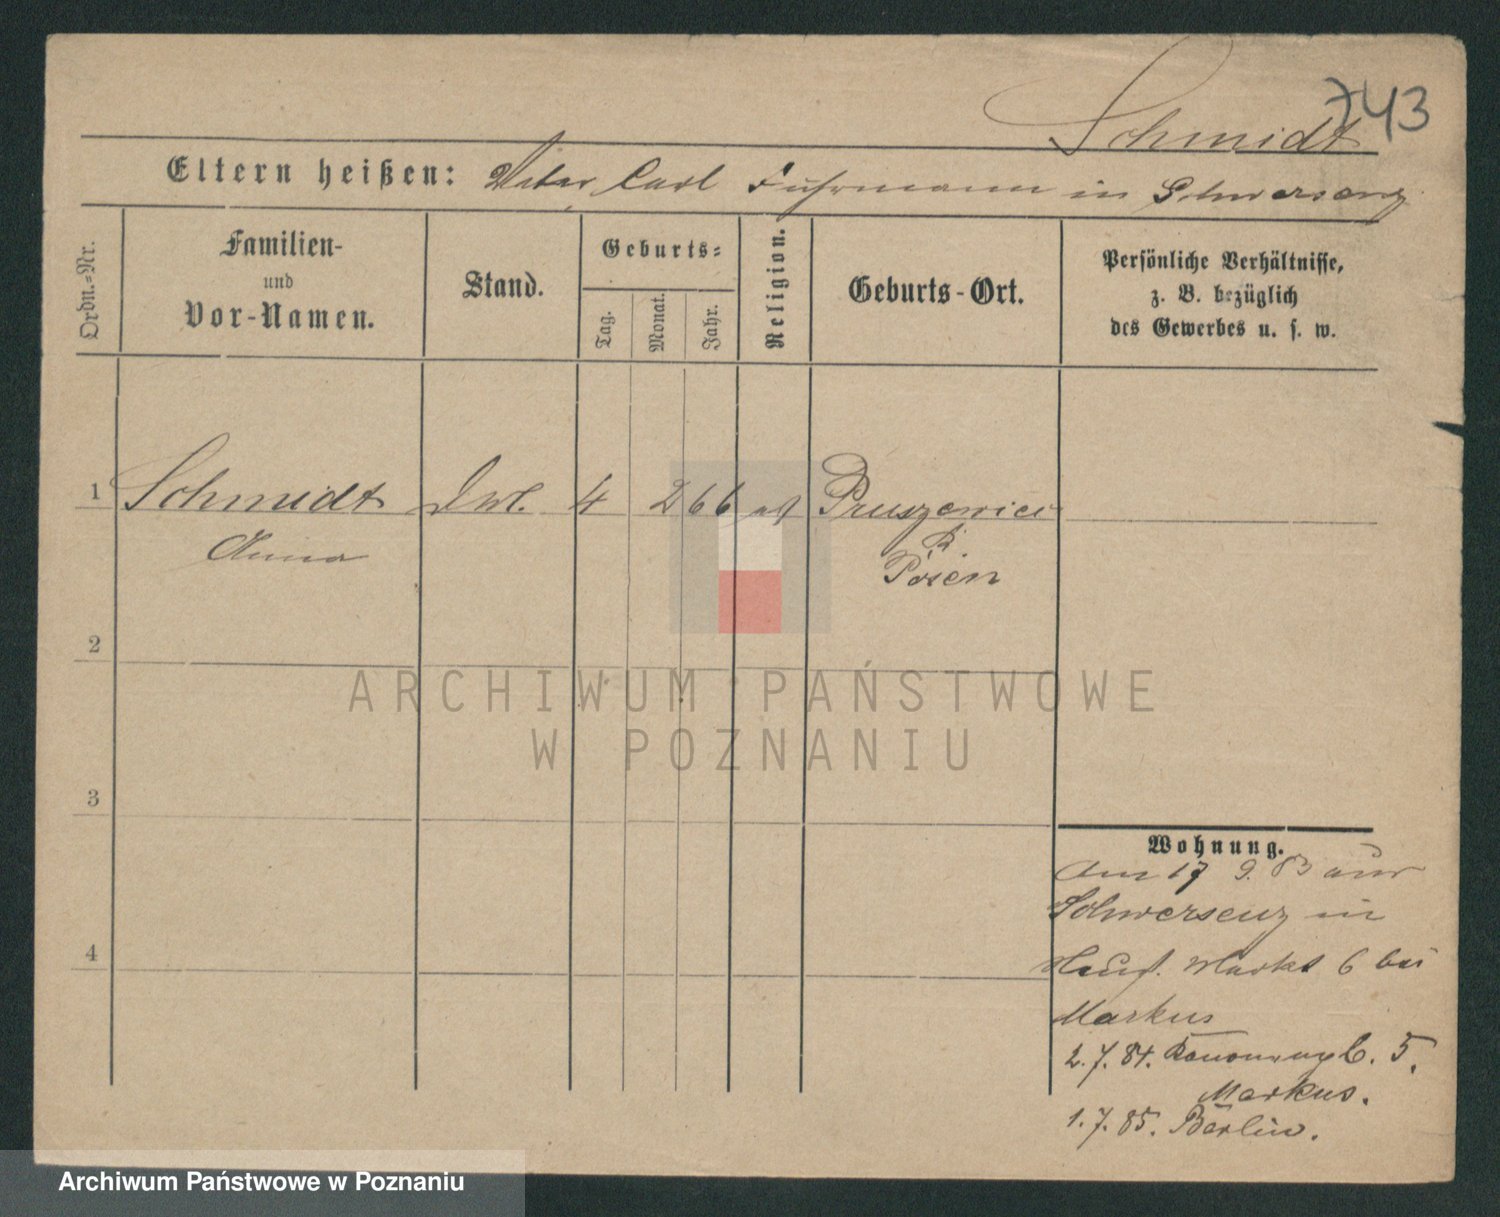 743
Schmidt
Eltern heißen: Vater Carl Fuhrmann in Schwersenz
Ordn.=Nr.
Familien-
und
Vor-Namen.
Stand.
Geburts=
Tag.
Monat.
Jahr.
Religion.
Geburts-Ort.
Persönliche Verhältnisse,
z. B. bezüglich
des Gewerbes u. s. w.
1 Schmidt 4 2 66 Pruszewiec
Anna
K.
Posen
2
3
4
Wohnung.
Am 17 9. 83 aus
Schwersenz in
Markt 6 bei
Markus
2.7.84. 5.
Markus.
1.7.85. Berlin.
ARCHIWUM PAŃSTWOWE
W POZNANIU
Archiwum Państwowe w Poznaniu